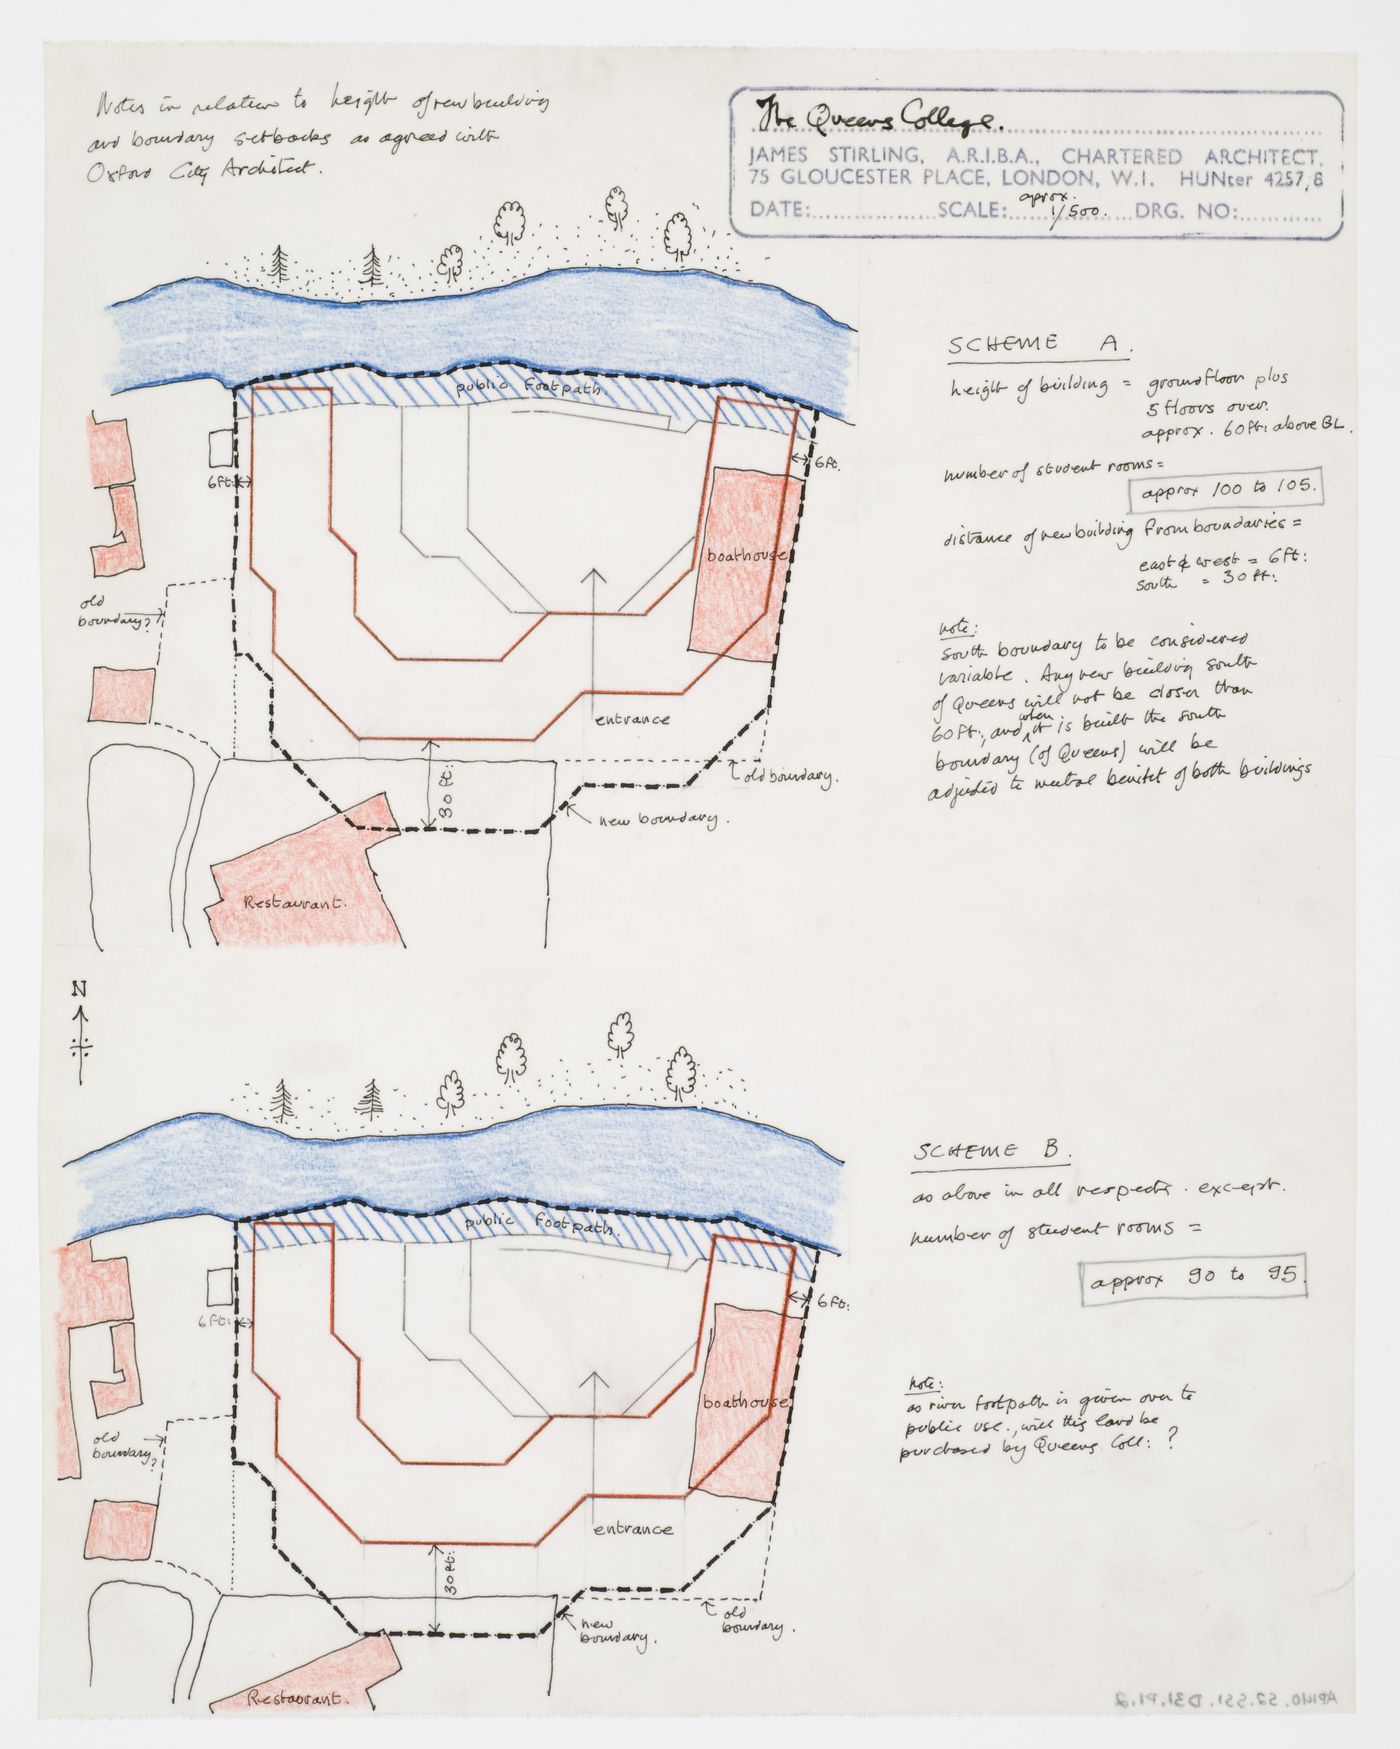 Notes in relation to height of new building
and boundary setbacks as agreed with
Oxford City Architect.
The Queens College.
JAMES STIRLING, A.R.I.B.A., CHARTERED ARCHITECT.
75 GLOUCESTER PLACE, LONDON, W.1. HUNter 4257/8
DATE:.................SCALE: aprox. 1/500. DRG. NO:............
public Footpath.
6ft:
6ft.
boathouse
old
boundary?
entrance
30 ft:
old boundary.
new boundary.
Restaurant.
SCHEME A.
height of building = ground floor plus
5 floors over.
approx. 60ft: above GL.
number of student rooms =
approx 100 to 105.
distance of new building from boundaries =
east & west = 6ft:
south = 30ft:
note:
south boundary to be considered
variable. Any new building south
of Queens will not be closer than
60ft:, and when it is built the south
boundary (of Queens) will be
adjusted to mutual benifet of both buildings
N
public footpath.
6ft:
6ft:
boathouse
old
boundary?
entrance
30ft:
new
boundary.
old
boundary.
Restaurant.
SCHEME B.
as above in all respects. except.
number of student rooms =
approx 90 to 95.
note:
as river footpath is given over to
public use., will this land be
purchased by Queens Coll: ?
AP140.S2.SS1.D31.P1.2